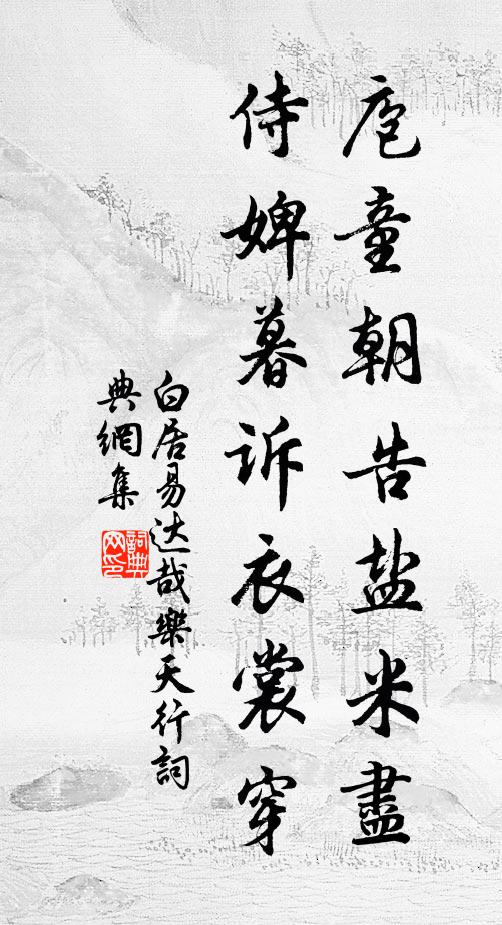 庖童朝告盐米盡
侍婢暮诉衣裳穿
白居易达哉樂天行詞
典網集
詞典
网印